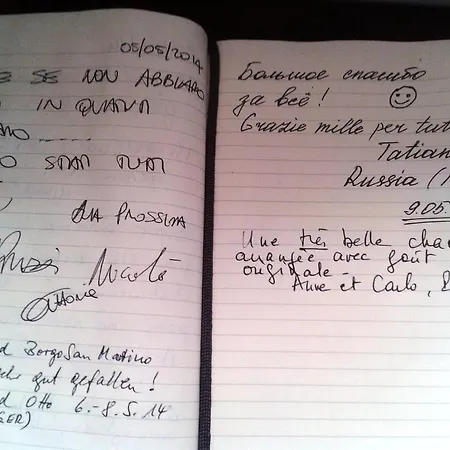 05/05/2014
E SE NON ABBIAMO
IN QUANTI
SIAMO ......
O STATI TUTTI
ALLA PROSSIMA
Nicolò
d Borgo San Martino
sehr gut gefallen!
d Otto 6.-8.5.14
GER)
Большое спасибо
за всё! ☺
Grazie mille per tut
Tatian
Russia (
9.05.
Une très belle cha
arrangée avec goût
originale -
Anne et Carlo,